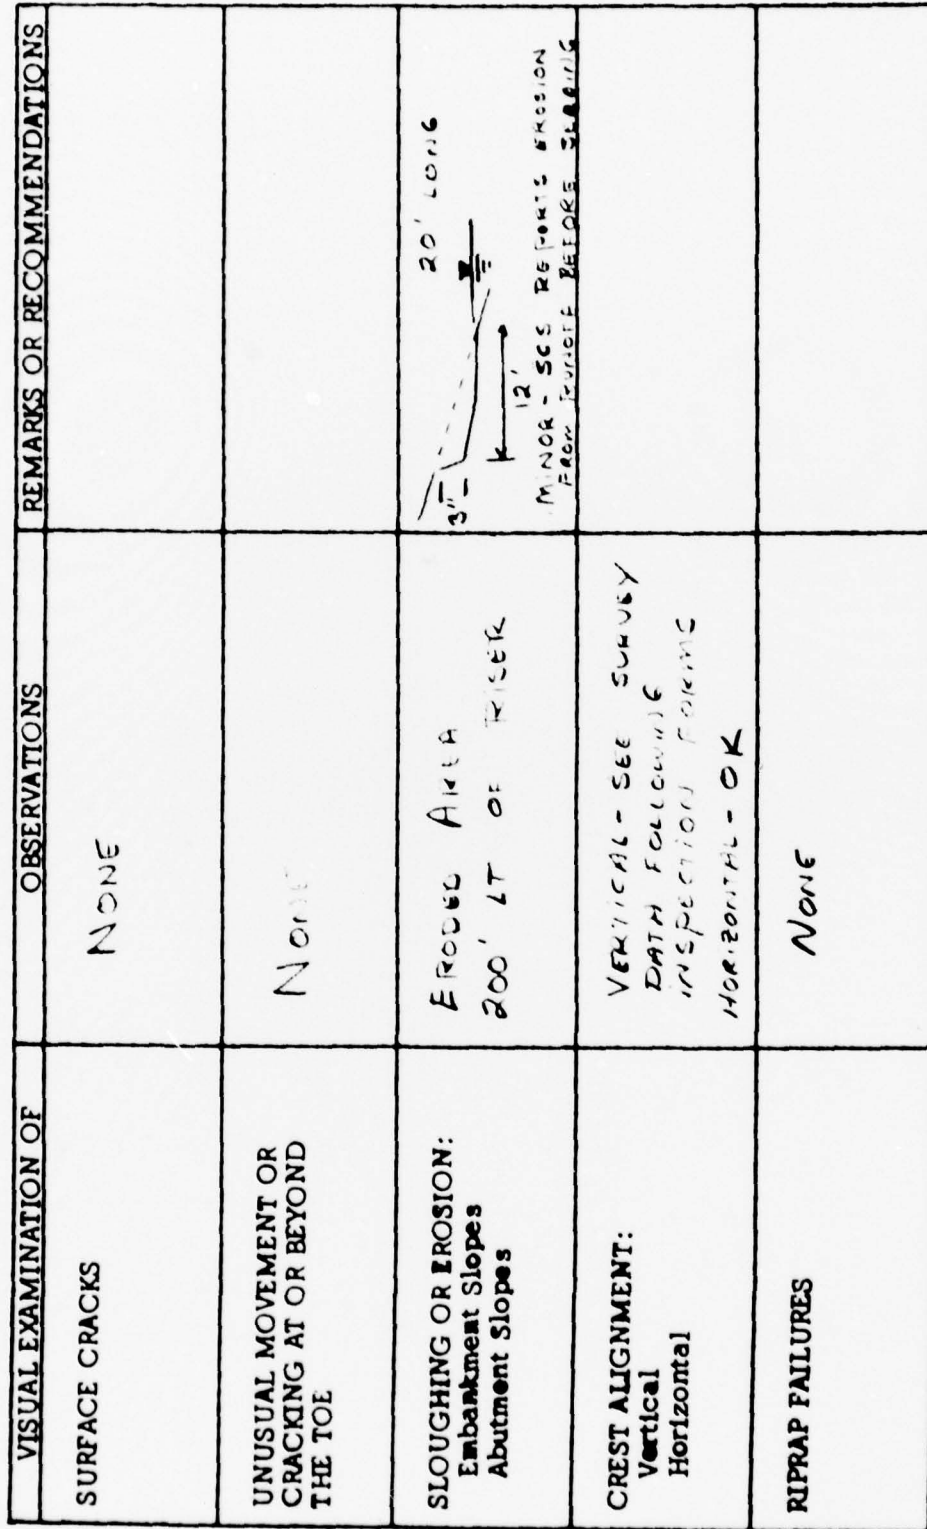 VISUAL EXAMINATION OF
OBSERVATIONS
REMARKS OR RECOMMENDATIONS
SURFACE CRACKS
NONE
UNUSUAL MOVEMENT OR
CRACKING AT OR BEYOND
THE TOE
NONE
SLOUGHING OR EROSION:
Embankment Slopes
Abutment Slopes
ERODED AREA
200' LT OF RISER
20' LONG
3"
12'
MINOR - SCS REPORTS EROSION
FROM RUNOFF BEFORE
CREST ALIGNMENT:
Vertical
Horizontal
VERTICAL - SEE SURVEY
DATA FOLLOWING
INSPECTION FORMS
HORIZONTAL - OK
RIPRAP FAILURES
NONE